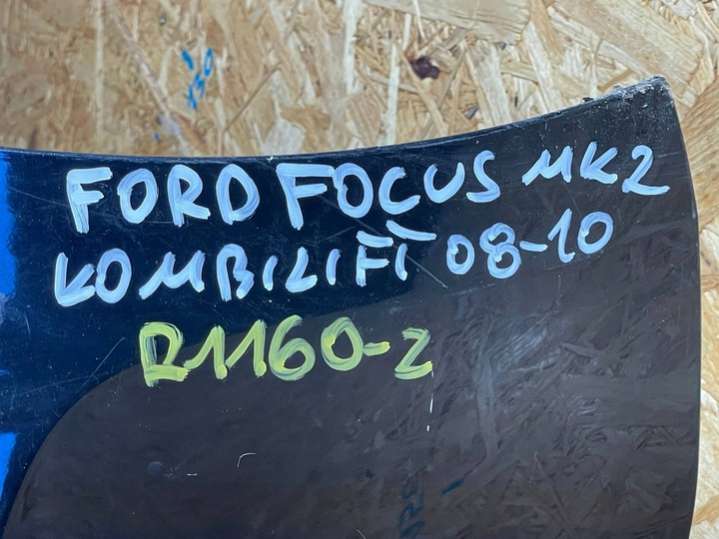 FORD FOCUS MK2
KOMBI LIFT 08-10
R1160-2